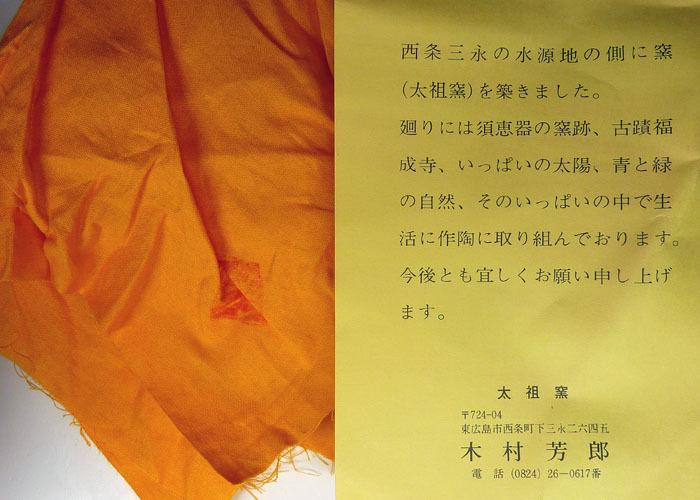 西条三永の水源地の側に窯
(太祖窯)を築きました。
廻りには須恵器の窯跡、古蹟福
成寺、いっぱいの太陽、青と緑
の自然、そのいっぱいの中で生
活に作陶に取り組んでおります。
今後とも宜しくお願い申し上げ
ます。
太祖窯
〒724-04
東広島市西条町下三永二六四五
木村芳郎
電話(0824)26-0617番